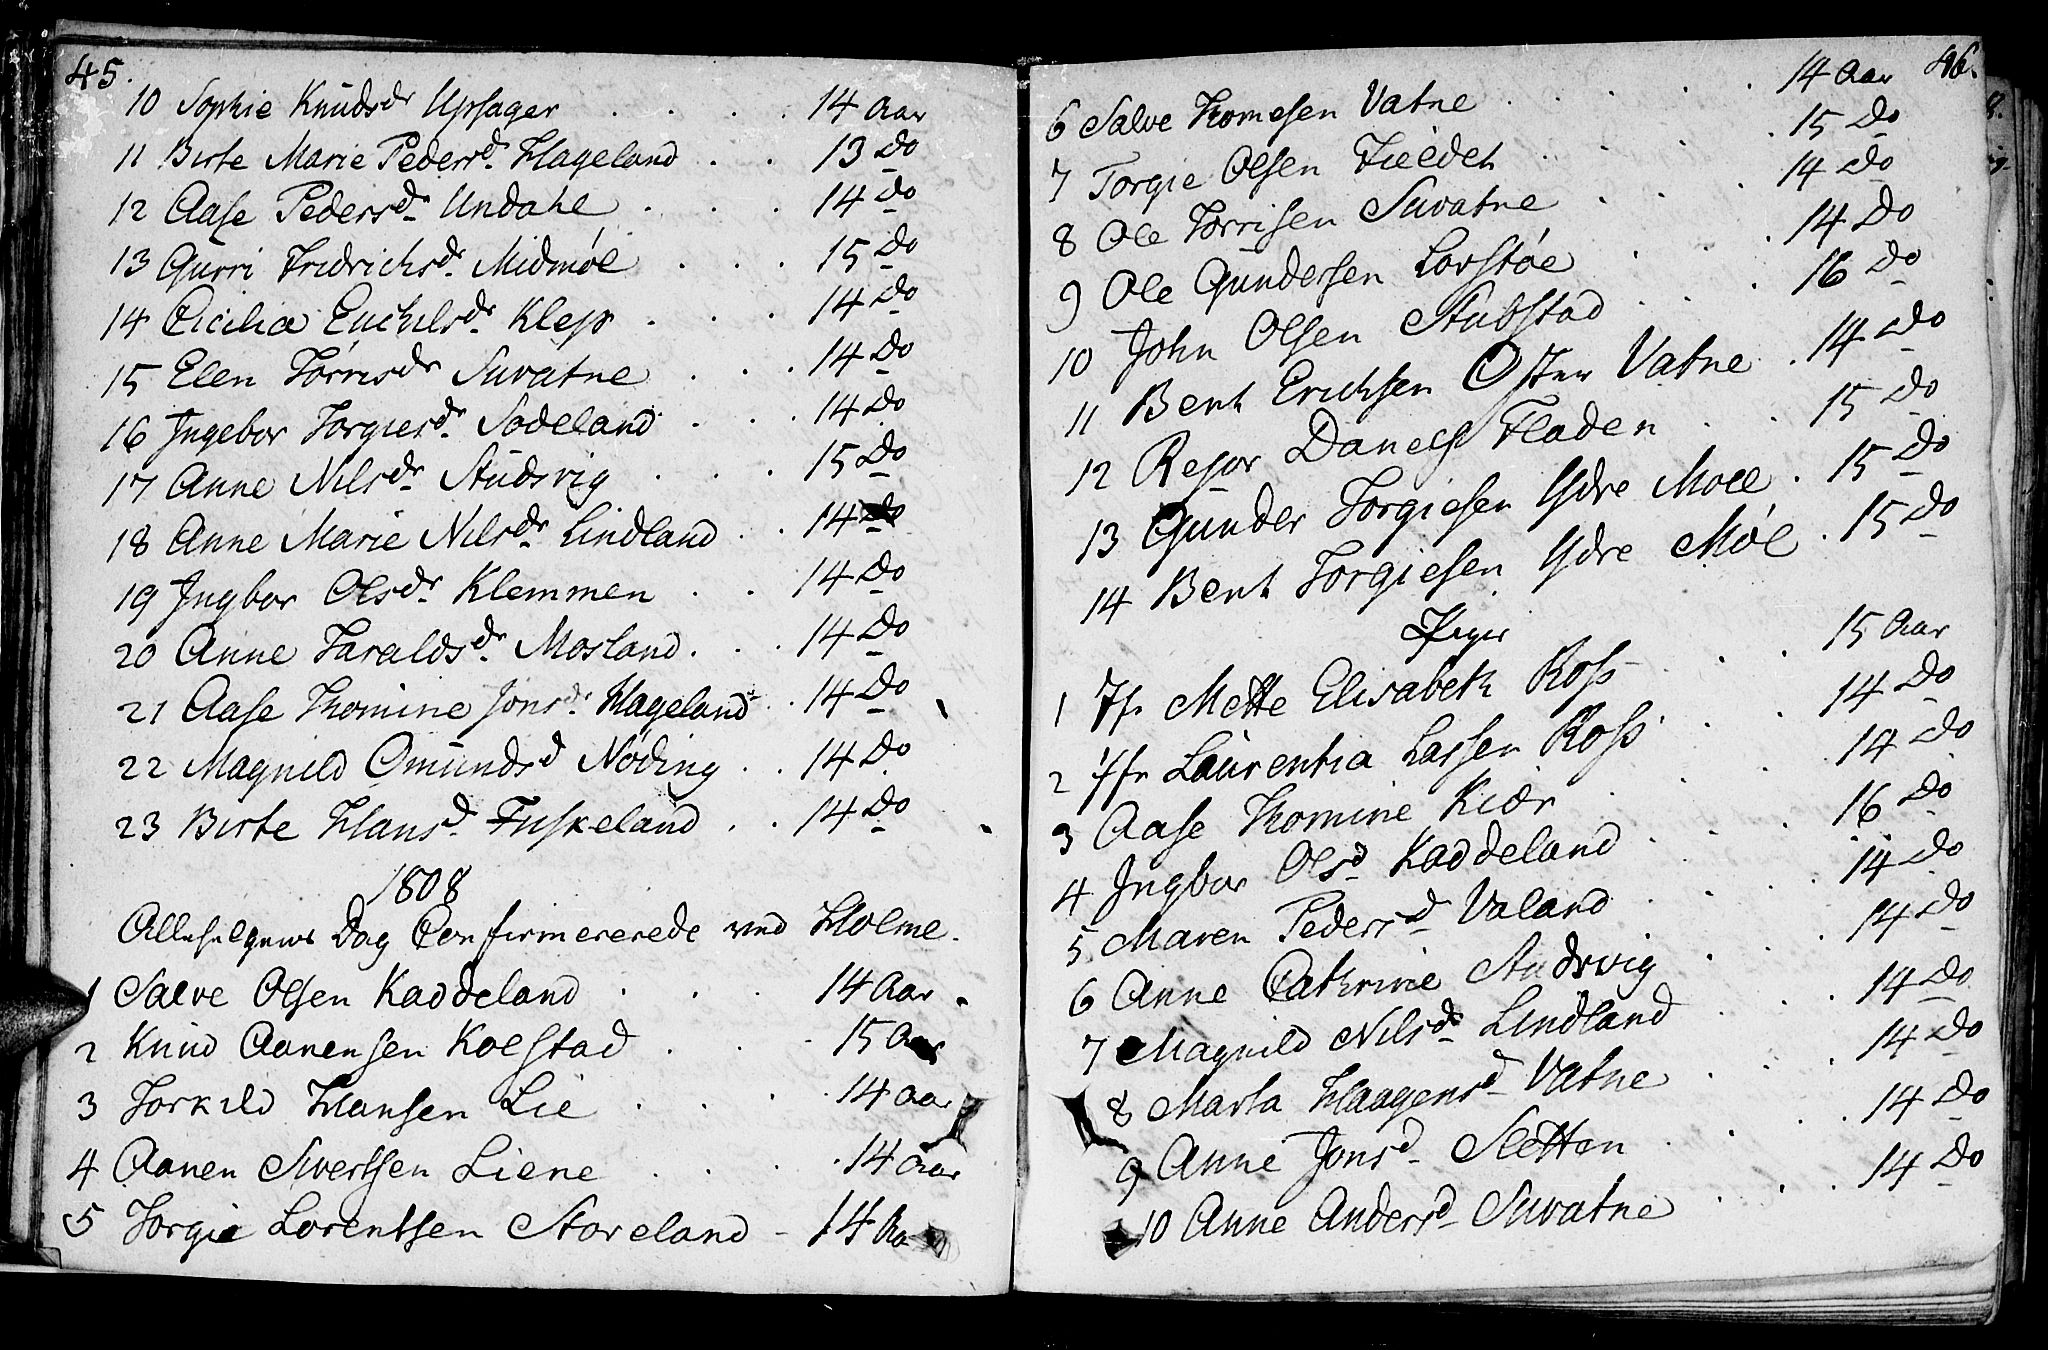 45.
10 Sophie Knudsdr Upsager . . . . 14 Aar
11 Birte Marie Pedersd. Hageland . . 13 Do
12 Aase Pedersd. Undahl . . . 14 Do
13 Gurri Fridrichsdr. Midmøl . . . 15 Do
14 Cicilia Euchilsdr. Klep . . . 14 Do
15 Elen Torrisdr Suvatne . . . 14 Do
16 Ingebor Torgiersdr. Sodeland . . . 14 Do
17 Anne Nilsdr. Studsvig . . . 15 Do
18 Anne Marie Nilsdr. Lindland . . 14 Do
19 Ingbor Olsdr. Klemmen . . 14 Do
20 Anne Taraldsdr. Mosland . . . 14 Do
21 Aase Thomine Jonsdr. Hageland . . 14 Do
22 Magnild Omundsd Nöding . . 14 Do
23 Birte Hansd. Fuskeland . . 14 Do
1808
Allehelgens Dag Confirmererede ved Holme.
1 Salve Olsen Kaddeland . . . 14 Aar
2 Knud Aanensen Kolstad . . . 15 Aar
3 Torkild Hansen Lie . . . 14 Aar
4 Aanen Sivertsen Liene . . . 14 Aar
5 Torgie Lorentsen Storeland - 14 Aa
46.
6 Salve Thomesen Vatne . . . . 14 Aar
7 Torgie Olsen Fieldet . . . . 15 Do
8 Ole Torrisen Suvatne . . . 14 Do
9 Ole Gundersen Lovstøe . . . 14 Do
10 John Olsen Stubstad . . . 16 Do
11 Bent Erichsen Øster Vatne . 14 Do
12 Reyer Danels Fladen . . 15 Do
13 Gunder Torgiesen Ydre Moel . 15 Do
14 Bent Torgiesen Ydre Møl . 15 Do
Piger
1 Jfr Mette Elisabeth Ross . . . 15 Aar
2 Jfr Laurentia Lassen Ross . . . 14 Do
3 Aase Thomine Kiær . . . 14 Do
4 Ingbor Olsd Kaddeland . . . 16 Do
5 Maren Pedersd Valand . . . 14 Do
6 Anne Cathrine Studsvig . . . 14 Do
7 Magnild Nilsdr. Lindland . . . 14 Do
8 Marta Haagensd Vatne . . . 14 Do
9 Anne Jonsd. Sletten . . . 14 Do
10 Anne Andersd. Suvatne . . . 14 Do